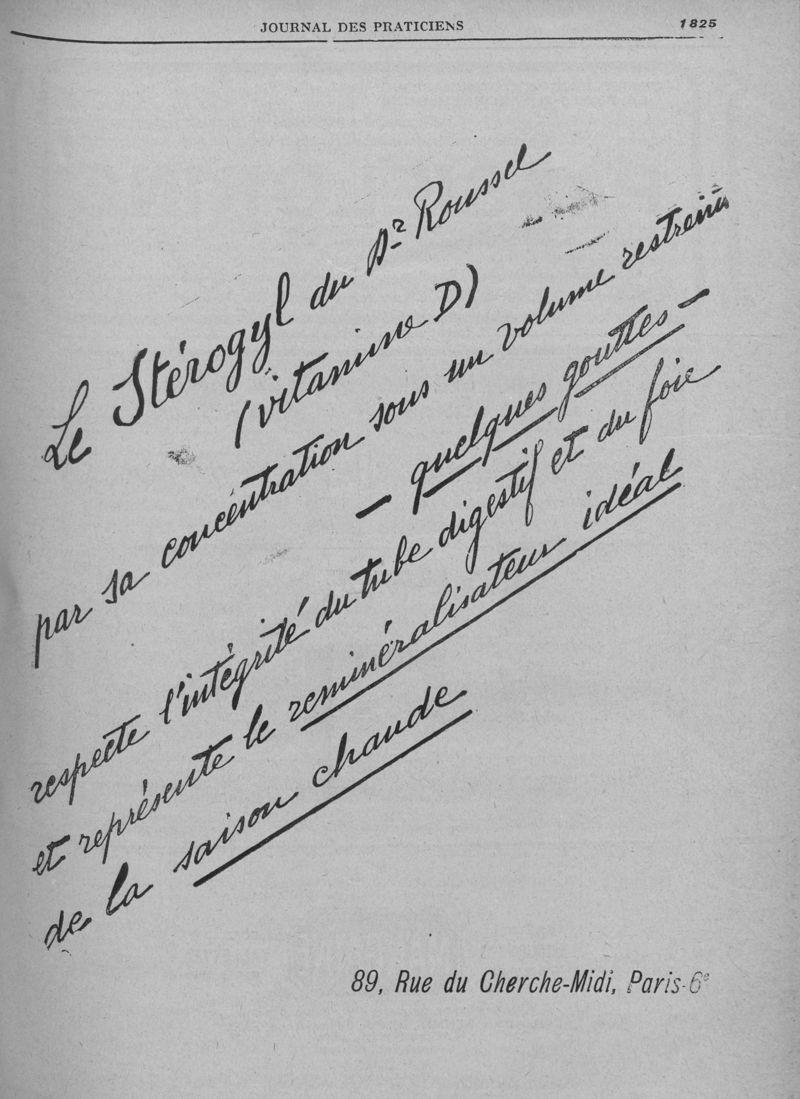 JOURNAL DES PRATICIENS 1825
Le Stérogyl du Dr Roussel
(vitamine D)
par sa concentration sous un volume restreint
— quelques gouttes —
respecte l'intégrité du tube digestif et du foie
et représente le reminéralisateur idéal
de la saison chaude
89, Rue du Cherche-Midi, Paris-6e